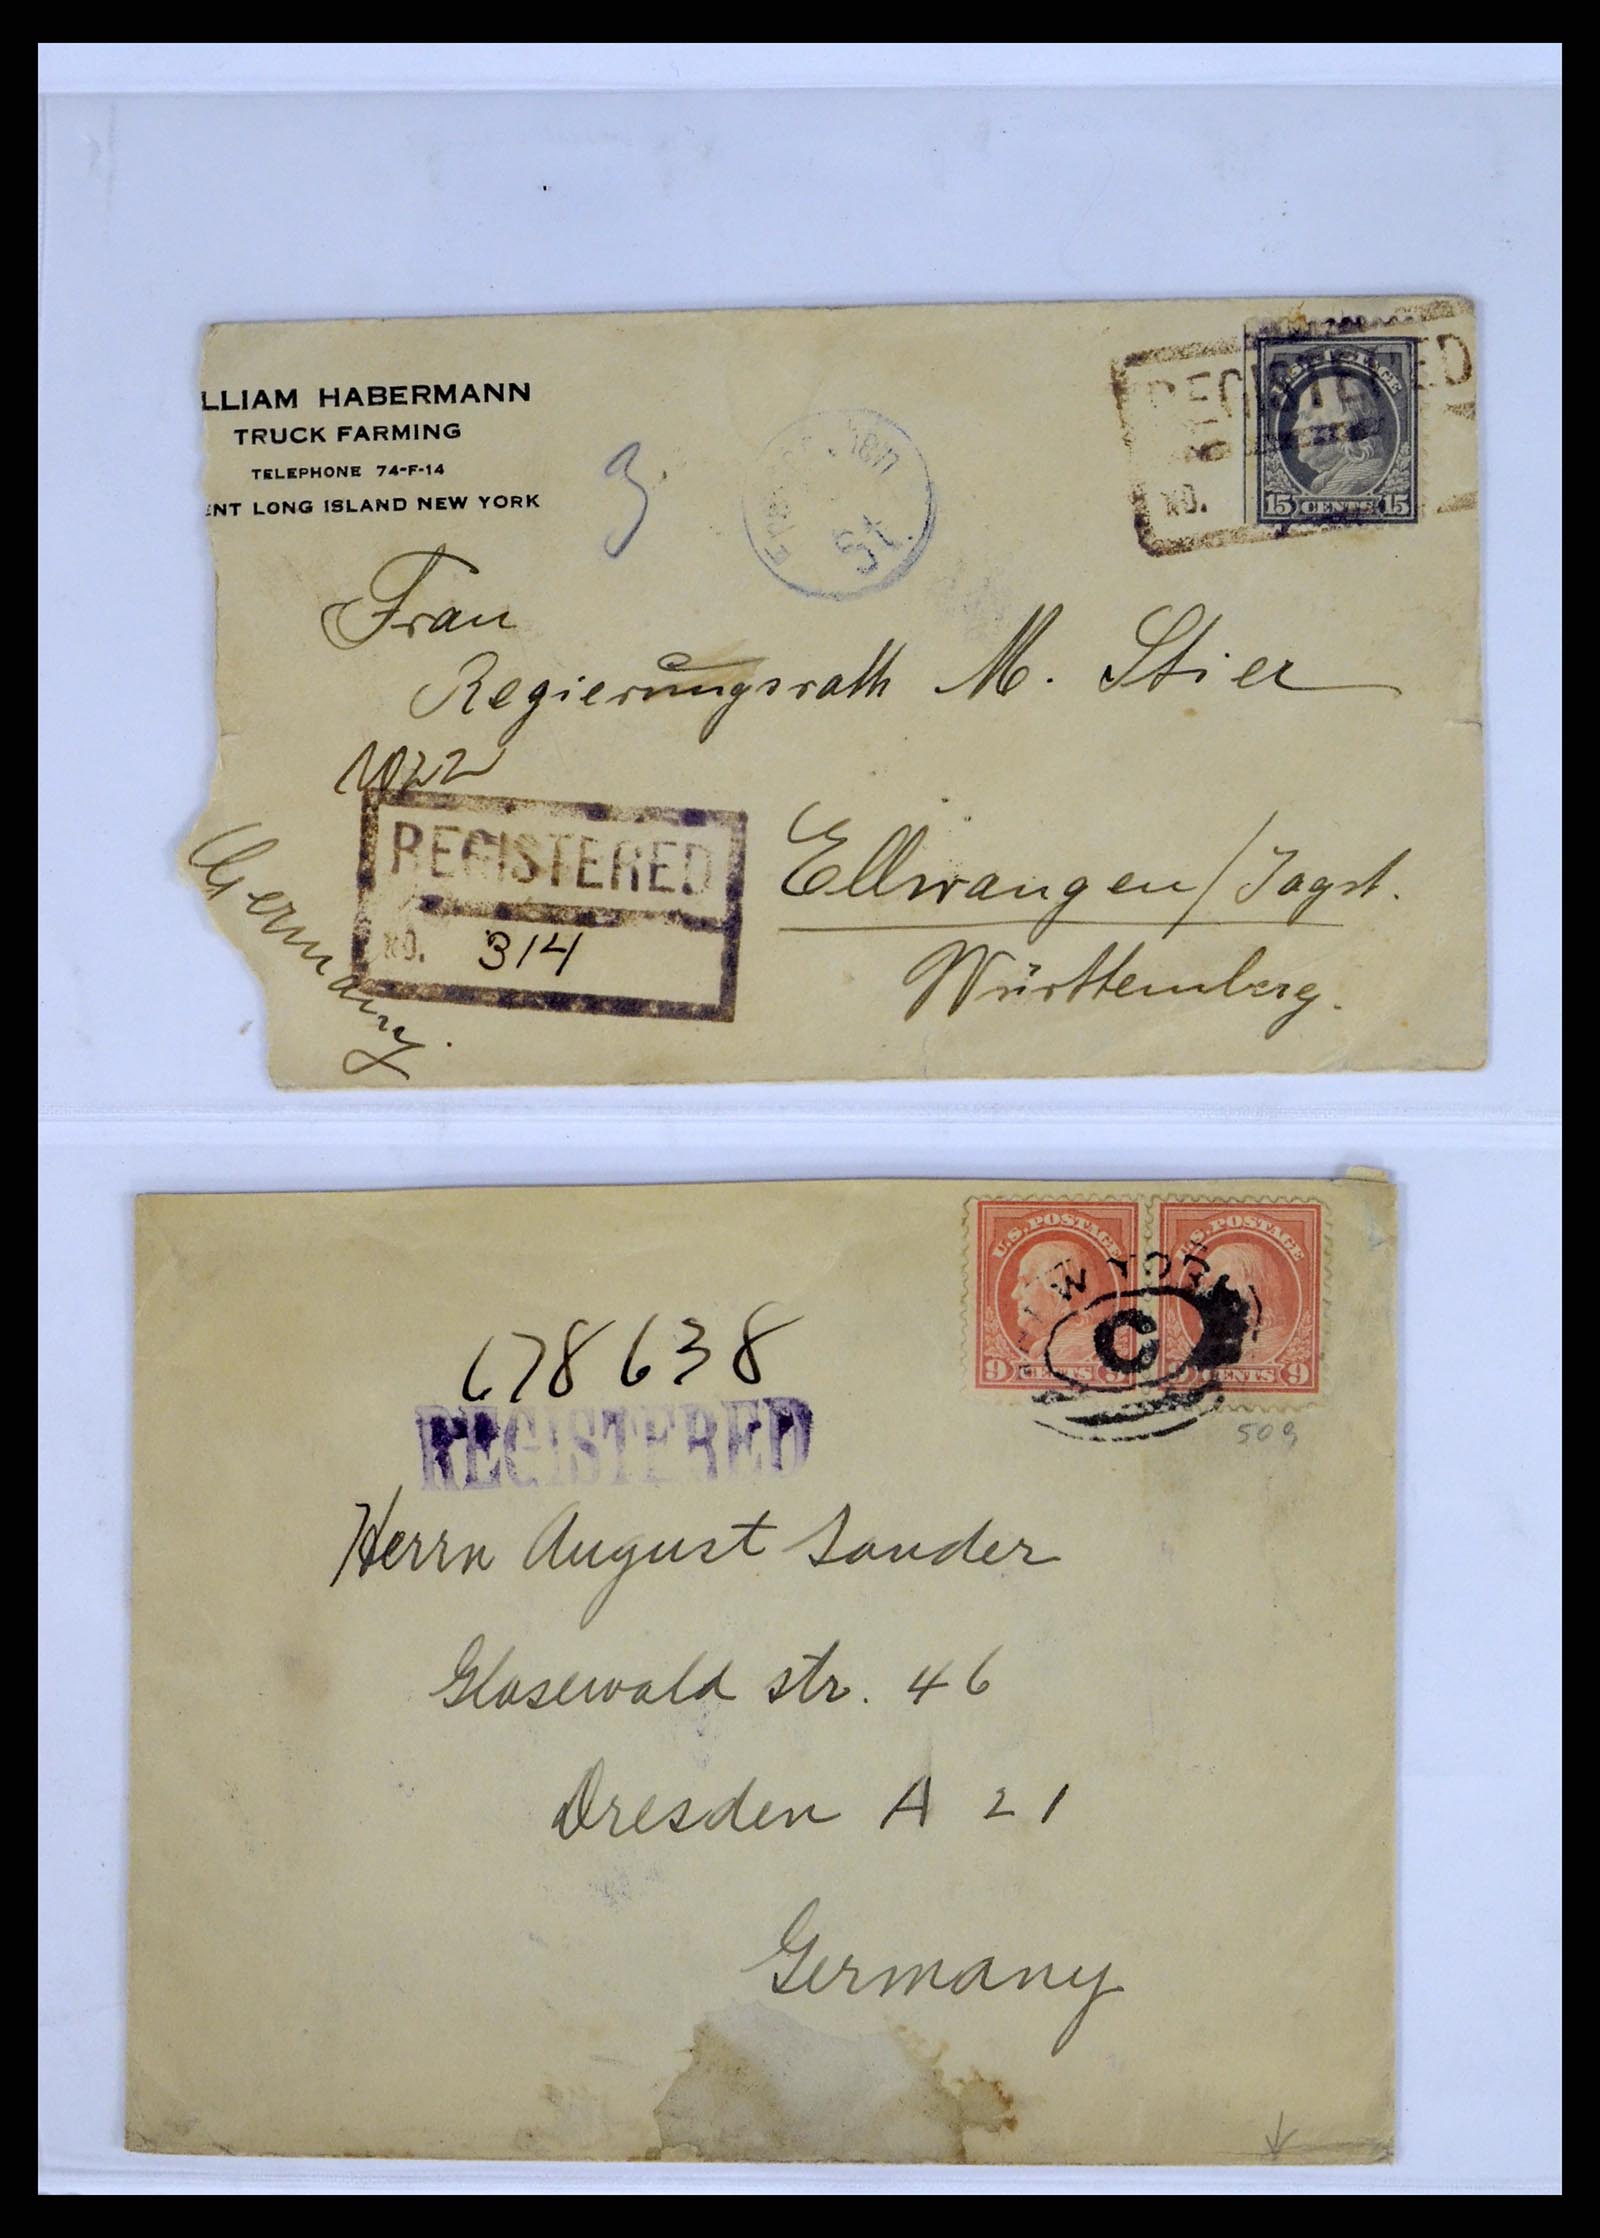 LLIAM HABERMANN
TRUCK FARMING
TELEPHONE 74-F-14
ENT LONG ISLAND NEW YORK
3.
St.
REGISTERED
NO.
U.S. POSTAGE
15 CENTS 15
Frau
Regierungsrath M. Stier
1022
REGISTERED
NO. 314
Ellwangen/Jagst.
Württemberg.
Germany.
U.S. POSTAGE
9 CENTS 9
U.S. POSTAGE
9 CENTS 9
C
509
678638
REGISTERED
Herrn August Sander
Glasewald str. 46
Dresden A 21
Germany